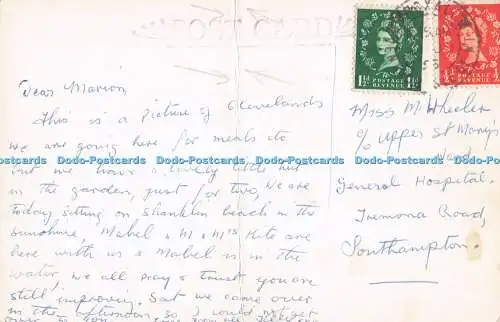 POST CARD
Dear Marion
This is a picture of Clevelands
we are going here for meals etc
but we have a lovely little hut
in the garden, just for two, we are
today sitting on Shanklin beach in the
sunshine, Mabel & M & M's Kite are
here with us & Mabel is in the
water, we all pray & trust you are
still improving. Sat we came over
in the afternoon, so I could not get
over to you
1½D POSTAGE REVENUE 1½D
½D POSTAGE REVENUE
Miss M. Wheeler
c/o Upper St Mary's
Ward
General Hospital.
Tremona Road,
Southampton.
Dodo-Postcards Dodo-Postcards Dodo-Postcards Dodo-Postcards Dodo-Postcards Dodo-Postcards